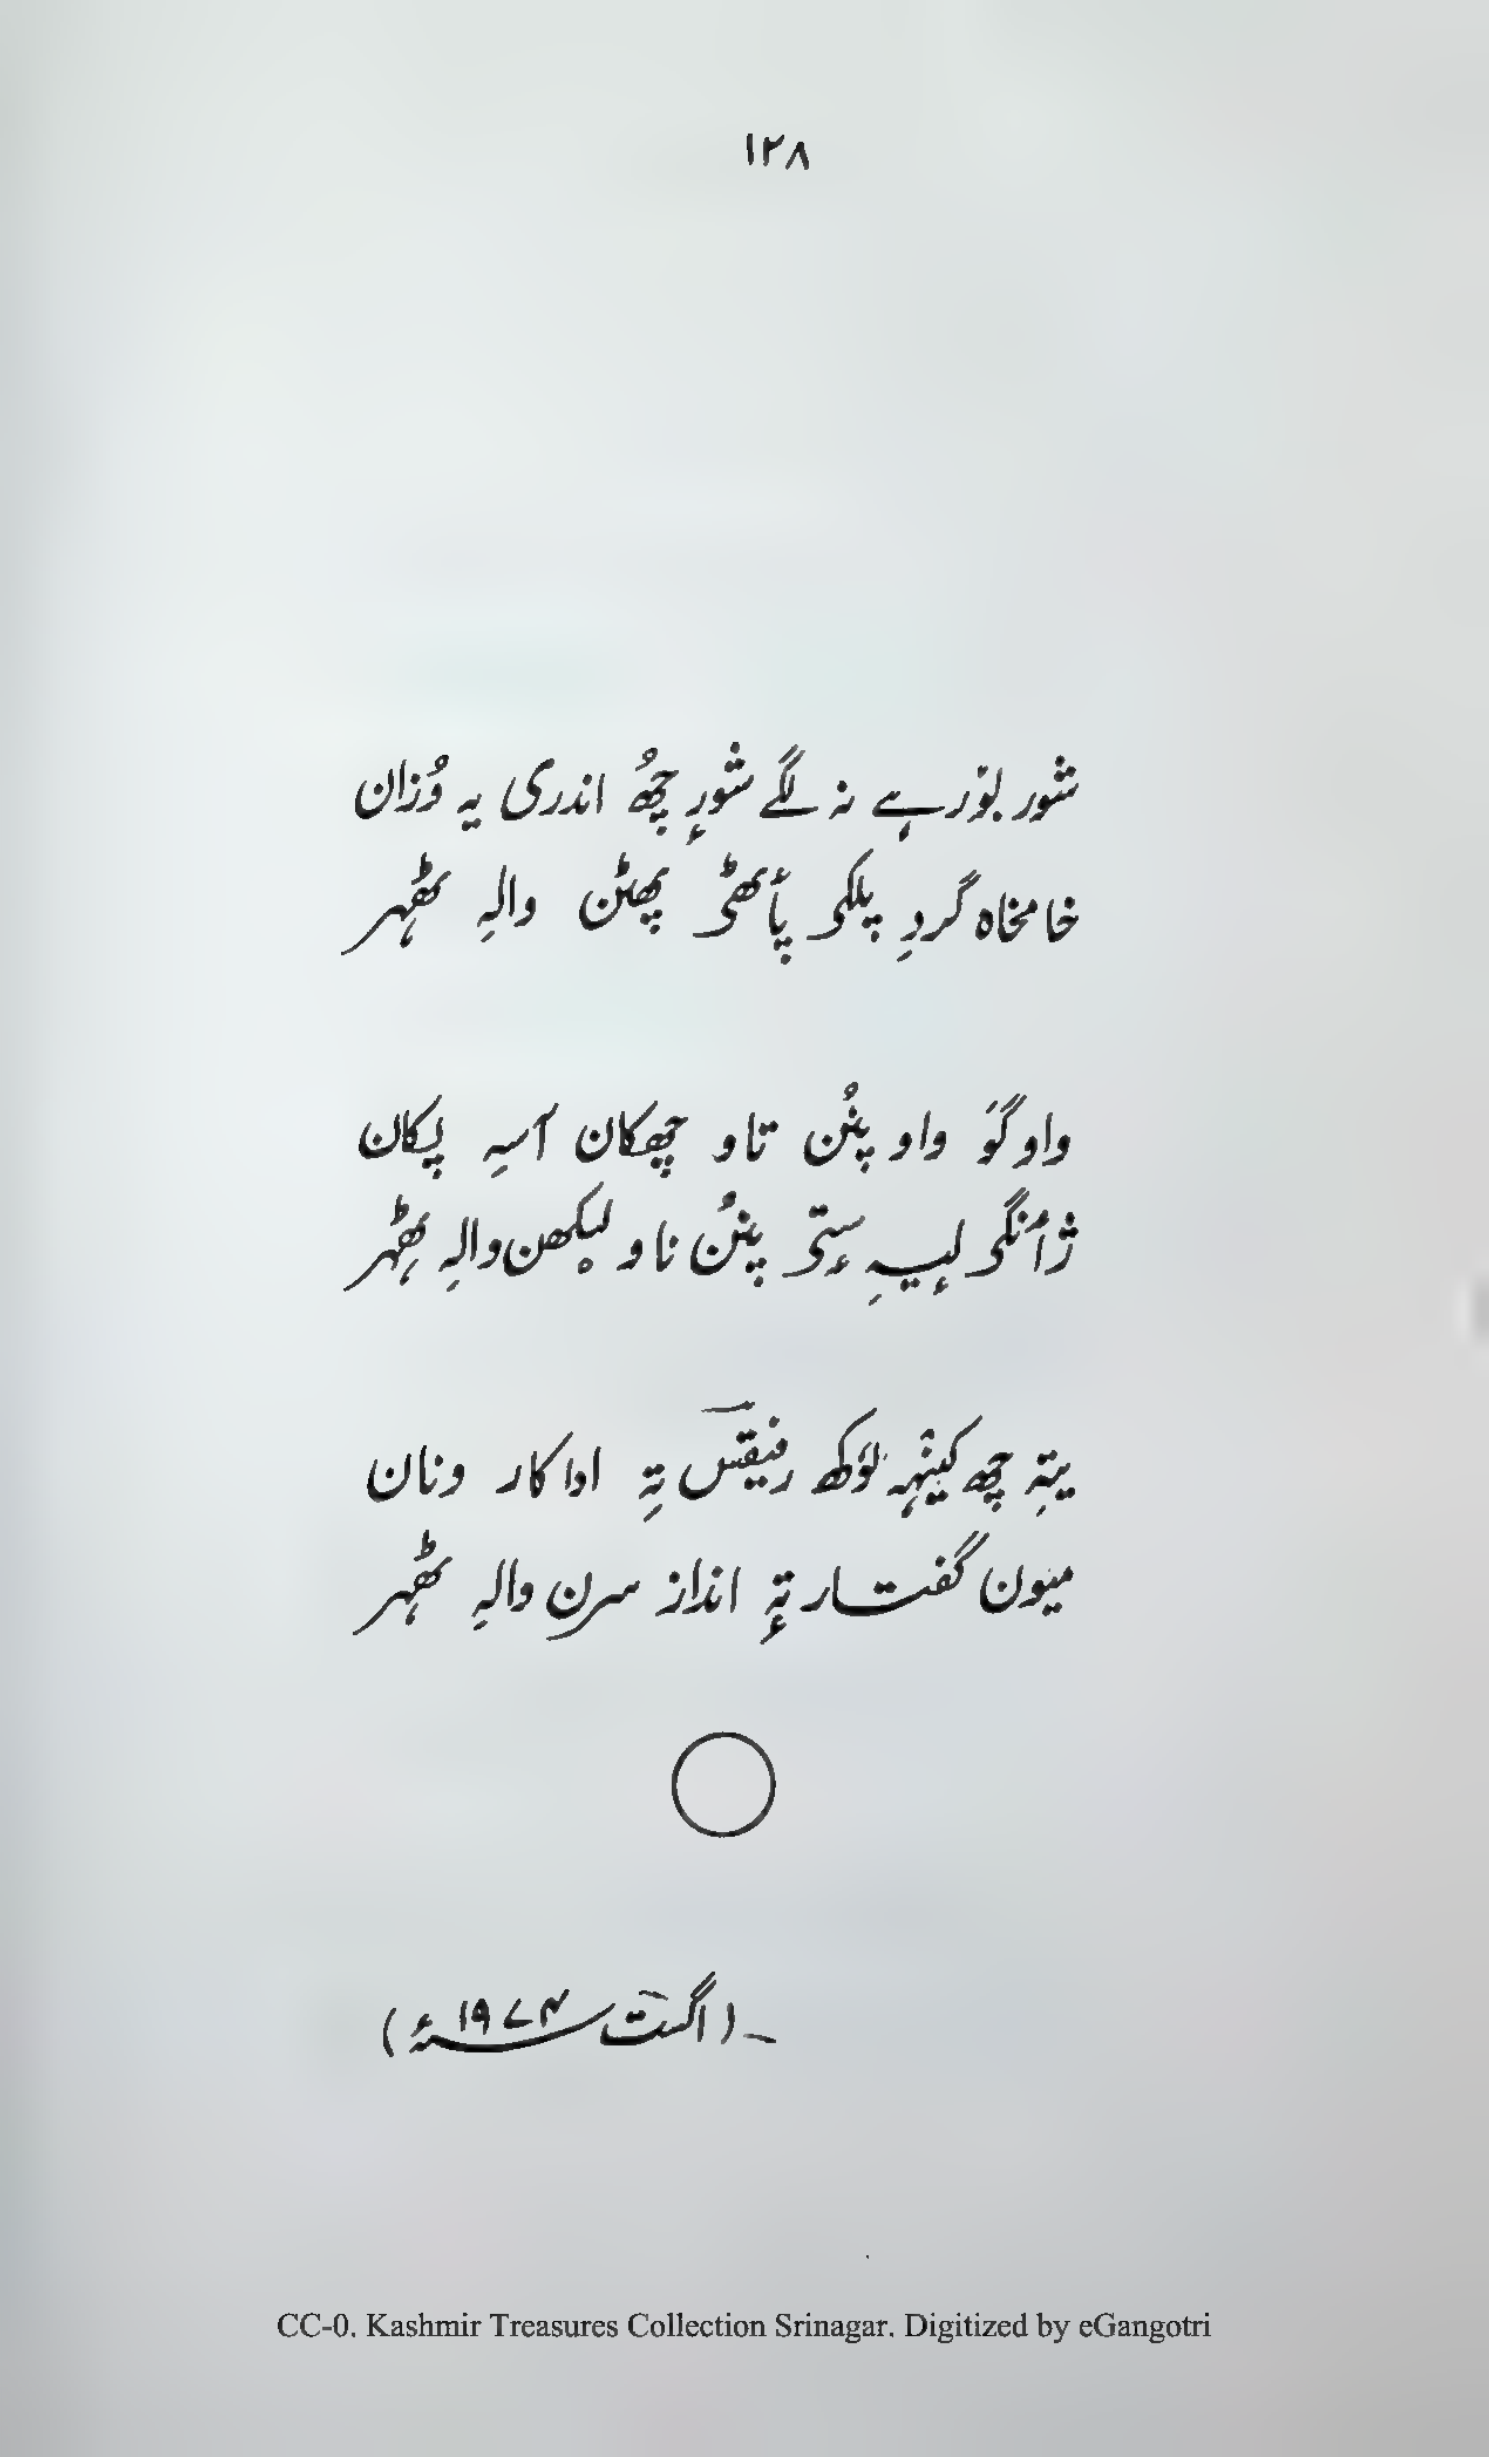 ۱۲۸
شور بوٚزہے نہ لگے شورٕ چھُ اندری یہ وُزان
خامخاہ گردِ پلکۍ پٲٹھۍ پھٹن والہِ ٹھہر
واو گوَ واو پنُن تاو چھکان آسہِ پکان
ژٲنگۍ لیسہِ سٟتۍ پننُ ناو لیکھن والہِ ٹھہر
یتہِ چھ کینٛہہ لوٗکھ رفیقسؔ تہِ اداکار ونان
میون گفتار تہٕ انداز سرن والہِ ٹھہر
ـ (اگست ۱۹۷۴ء)
CC-0. Kashmir Treasures Collection Srinagar. Digitized by eGangotri